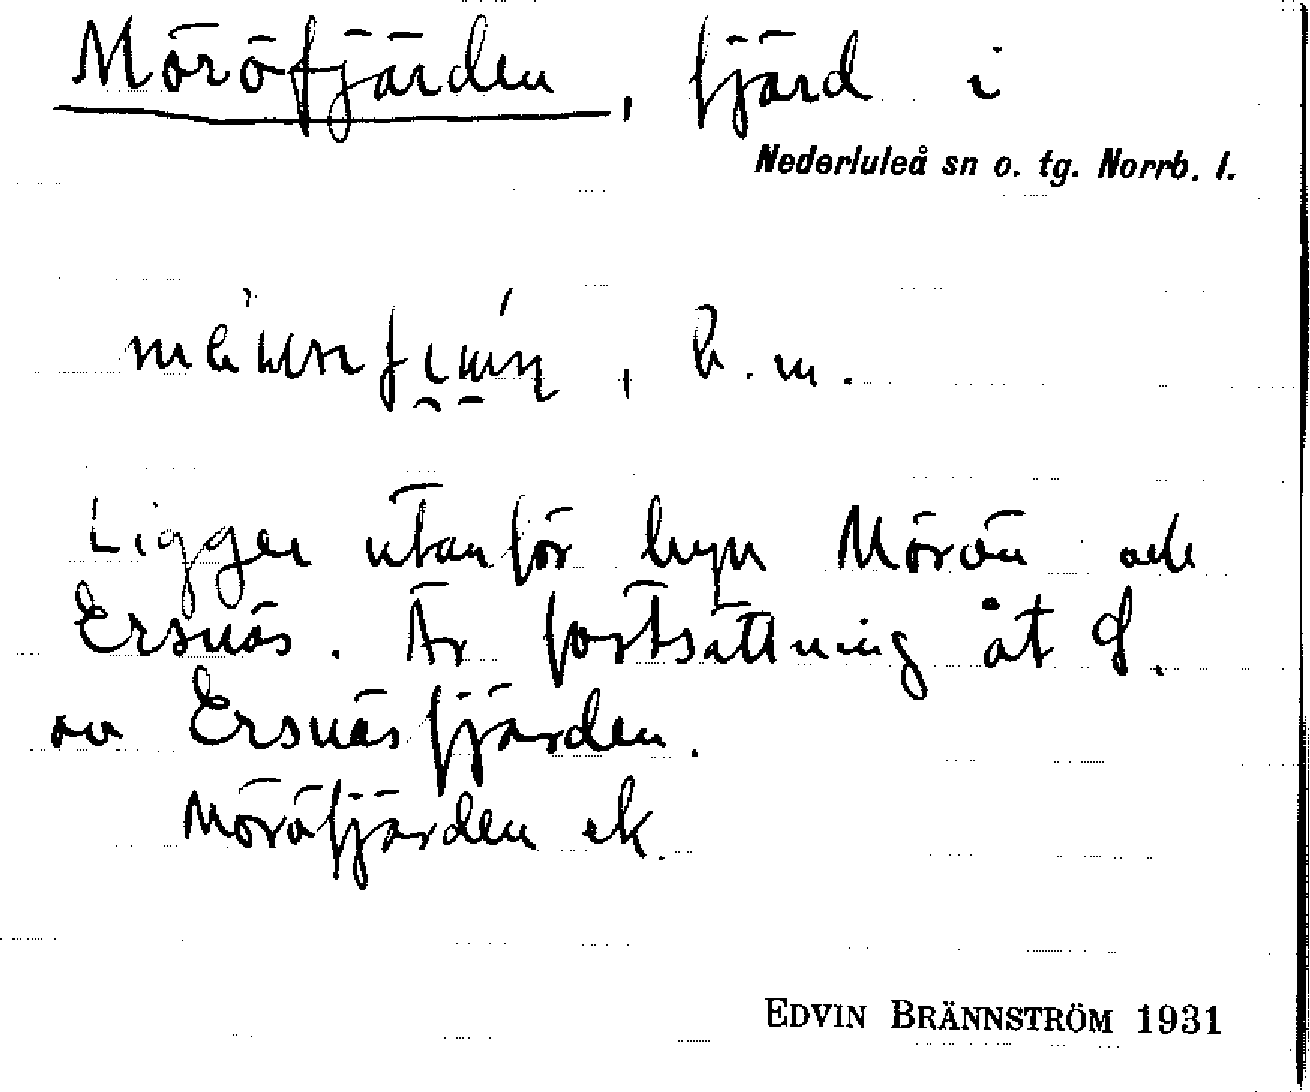 Möröfjärden, fjärd i
Nederluleå sn o. tg. Norrb. l.
b. m.
Ligger utanför byn Mörön och
Ersnäs. Är fortsättning åt S.
av Ersnäsfjärden.
Möröfjärden ek.
EDVIN BRÄNNSTRÖM 1931